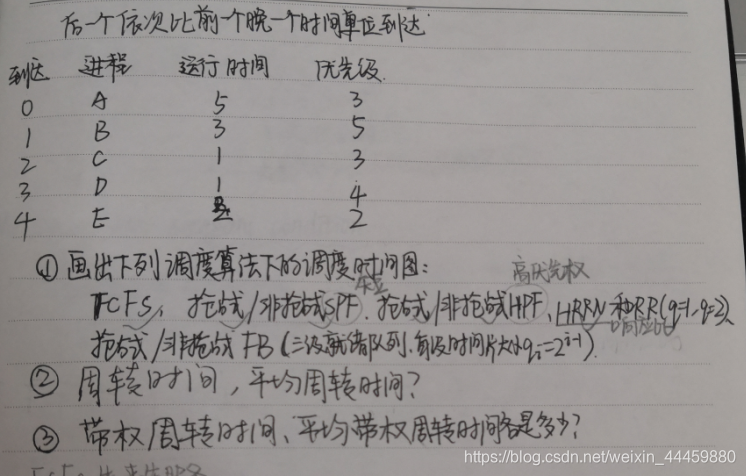 后一个依次比前一个晚一个时间单位到达
到达 进程 运行时间 优先级
0 A 5 3
1 B 3 5
2 C 1 3
3 D 1 4
4 E 2 2
① 画出下列调度算法下的调度时间图:
高优先权
FCFS, 抢占式/非抢占式SPF. 抢占式/非抢占式HPF、HRRN和RR(q=1,q=2)、
抢占式/非抢占式 FB (三级就绪队列,每级时间片大小qi=2^(i-1)).
② 周转时间,平均周转时间?
③ 带权周转时间、平均带权周转时间各是多少?
https://blog.csdn.net/weixin_44459880